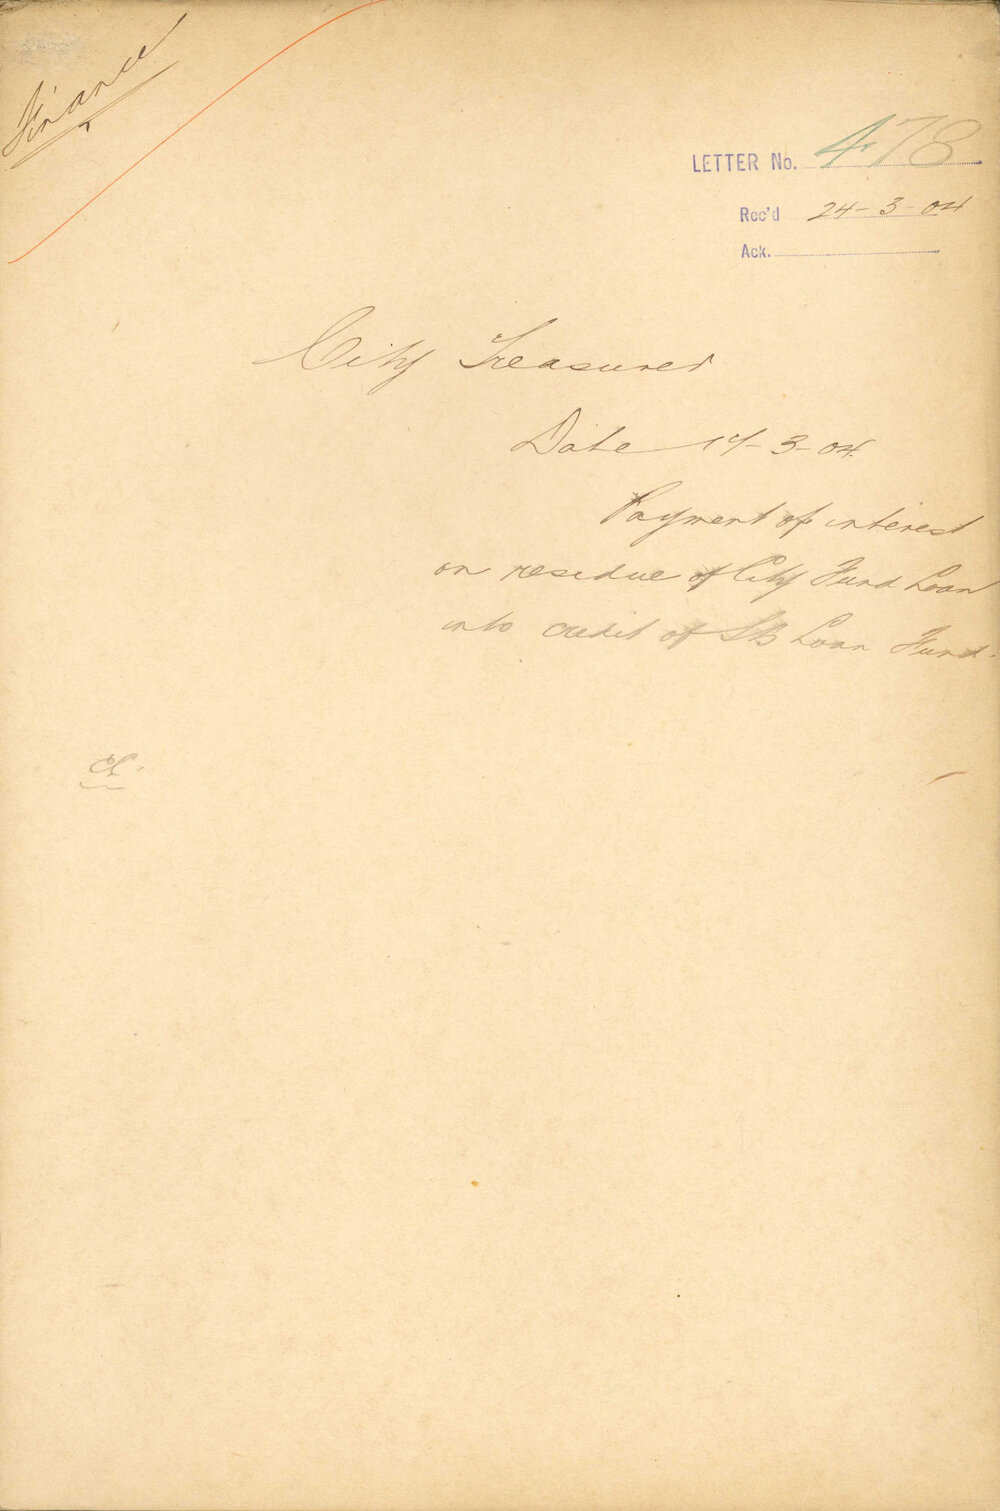 Finance
LETTER No. 478
Rec'd 24-3-04
Ack.
City Treasurer
Date 17-3-04.
Payment of interest
on residue of City Fund Loan
into credit of SB Loan Fund.